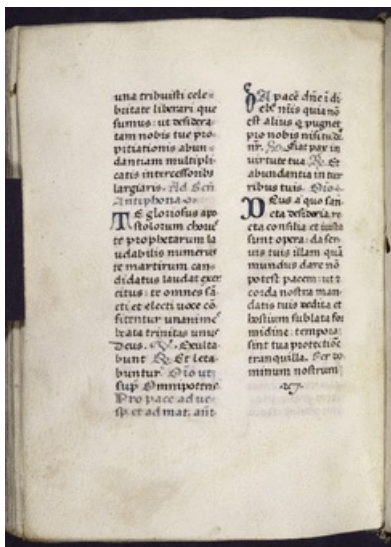 una tribuisti cele-
britate liberari que
sumus: ut desidera-
tam nobis tue pro-
pitiationis abun-
dantiam multipli-
catis intercessoribꝰ
largiaris. Ad Scn̄
Antiphona
TE gloriosus apo
stolorum chorus
te prophetarum la
udabilis numerus
te martirum can-
didatus laudat exer
citus: te omnes sā
cti et electi uoce cō
fitentur unanimes
beata trinitas unus
Deus. ℣. Exulta
bunt ℟. Et leta
buntur. Oiō ut
sup̄ Omnipotens
Pro pace ad ue-
sp̄. et ad mat. an̄t
DA pacē dn̄e ī di
ebꝰ nr̄is quia nō
est alius q pugnet
pro nobis nisi tu dē
nr̄. ℣. Fiat pax in
virtute tua ℟. Et
abundantia in tur
ribus tuis. Oiō
DEus a quo san
cta desideria re
cta consilia et iusta
sunt opera: da ser
uis tuis illam quā
mundus dare nō
potest pacem: ut z
corda nostra man
datis tuis dedita et
hostium sublata for
midine: tempora
sint tua protectiōe
tranquilla. Per do
minum nostrum